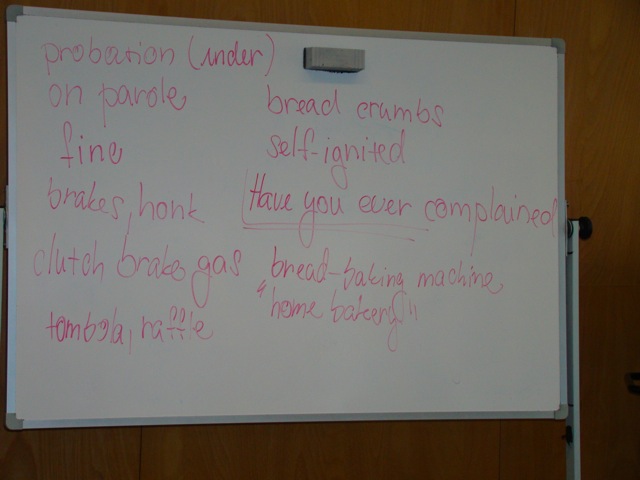 probation (under)
on parole
fine
brakes, honk
clutch brake gas
tombola, raffle
bread crumbs
self-ignited
Have you ever complained
bread-baking machine,
"home bakery"